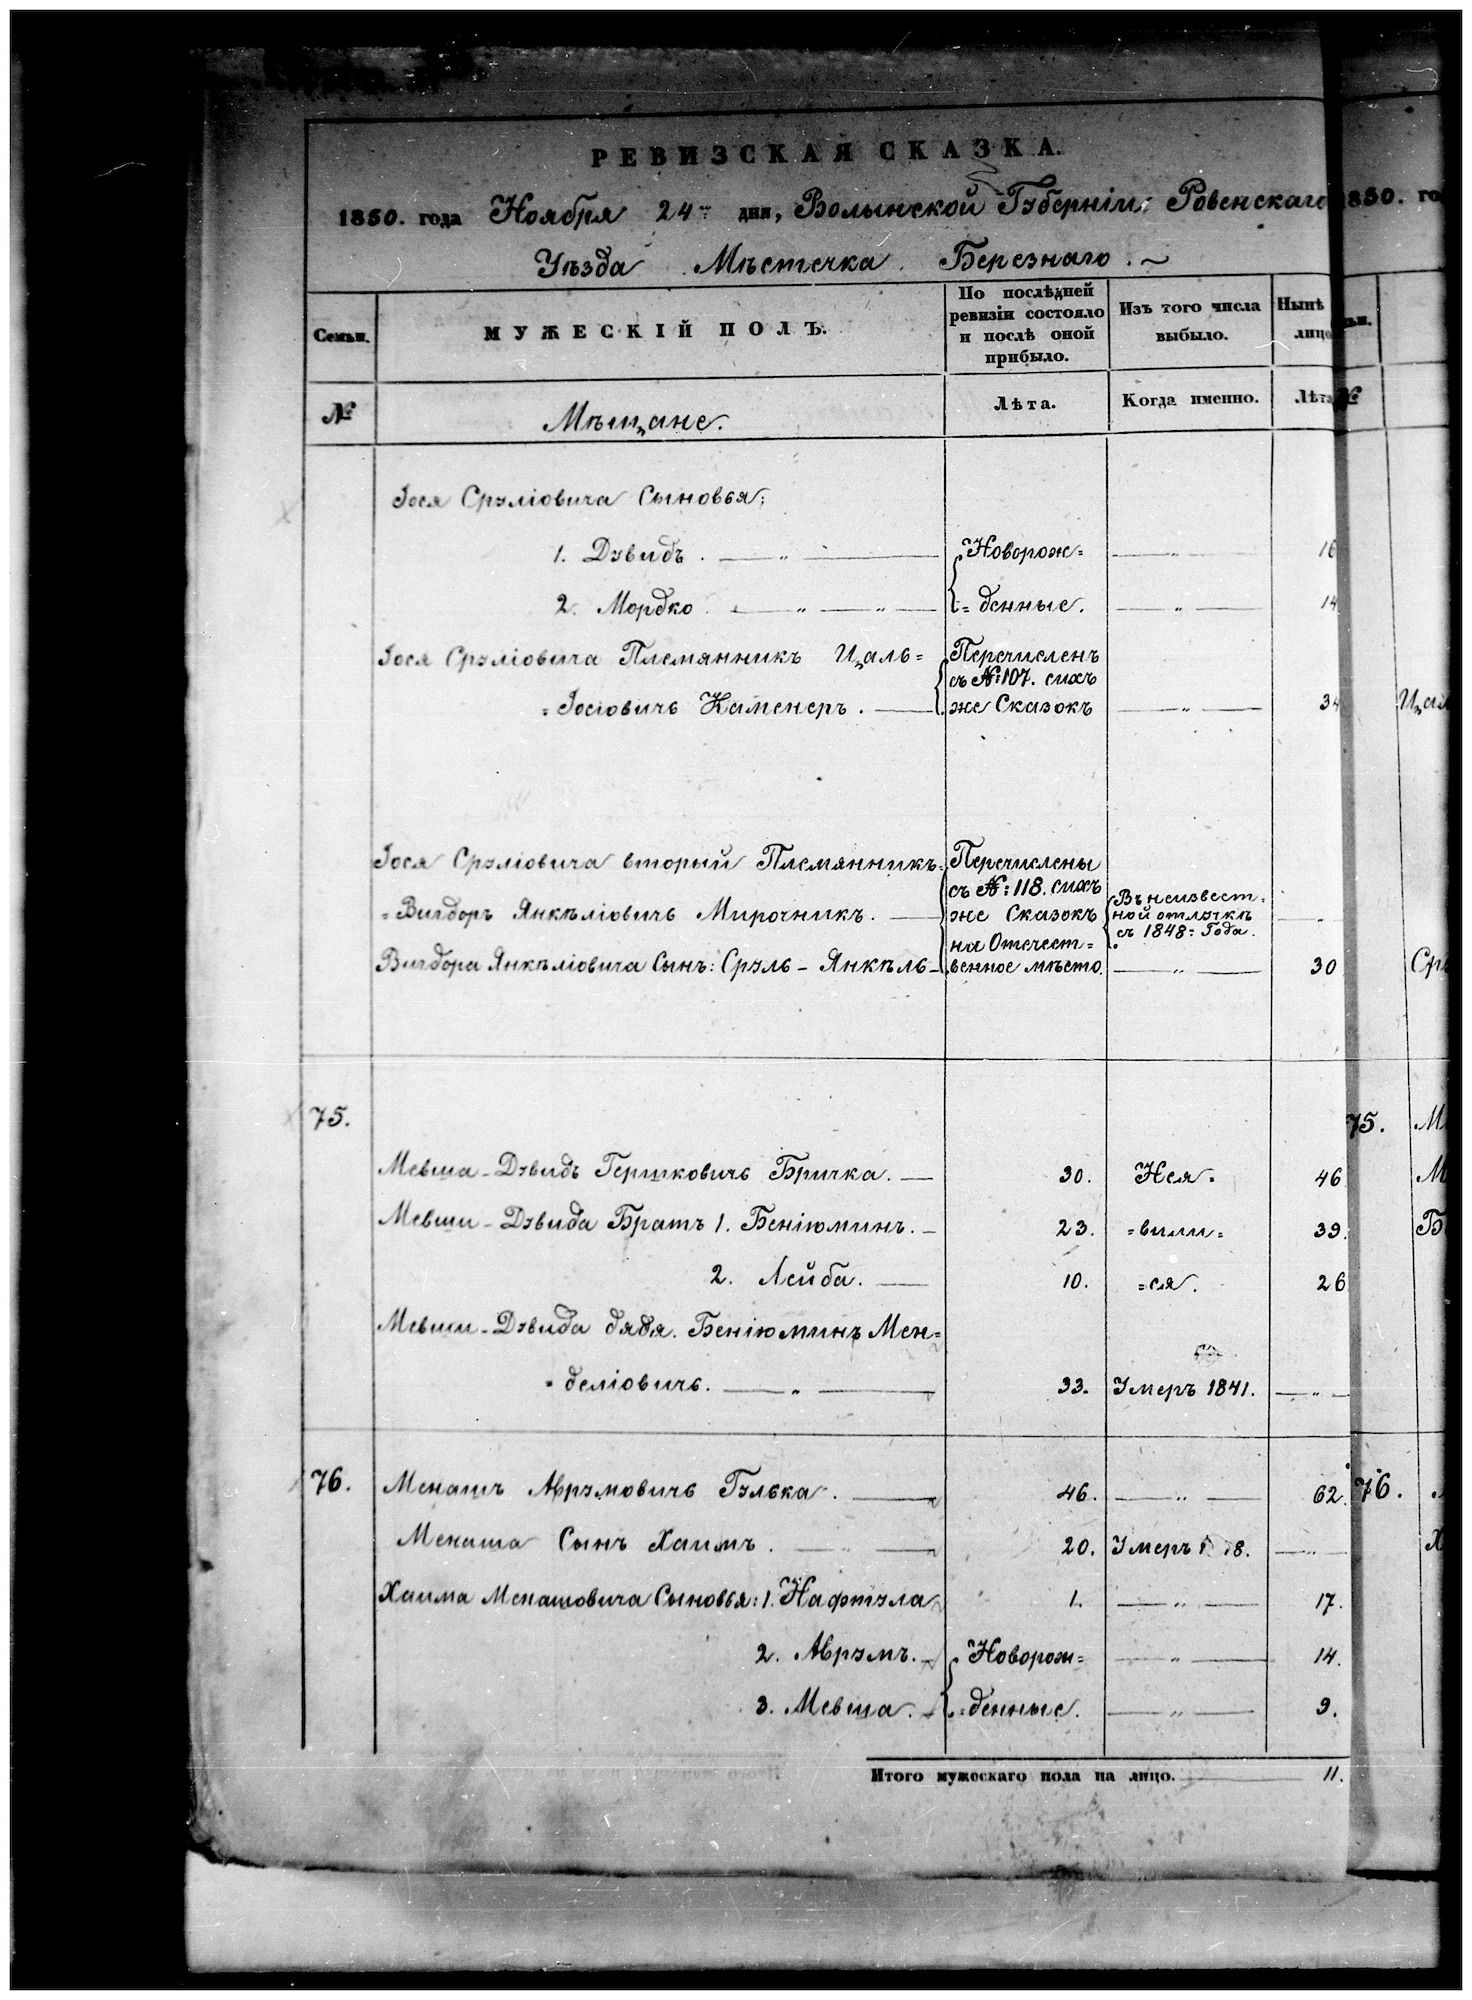 РЕВИЗСКАЯ СКАЗКА.
1850. года Ноября 24 дня, Волынской Губерніи Ровенскаго
Уѣзда Мѣстечка Березнаго.
Семьи. МУЖЕСКІЙ ПОЛЪ. По послѣдней ревизіи состояло и послѣ оной прибыло. Изъ того числа выбыло. Нынѣ лицо
№ Мѣщане. Лѣта. Когда именно. Лѣта
Іося Срулiовича Сыновья:
1. Дувидъ. Новорож= 16
2. Мордко. =денные. 14
Іося Срулiовича Племянникъ Цаль= Перечисленъ
съ №: 107. сихъ
=Іосіовичь Каменеръ. же Сказокъ 34
Іося Срулiовича вторый Племянникъ Перечислены
съ №: 118. сихъ Въ неизвест=
=Вигдоръ Янкѣліовичь Мирочникъ. же Сказокъ ной отлучкѣ
на Отечест= съ 1848: Года.
Вигдора Янкѣліовича Сынъ: Сруль-Янкѣль венное мѣсто. 30
75.
Мевша-Дувидъ Гершковичь Бричка. 30. Нея= 46
Мевши-Дувида Братъ 1. Беніюминъ. 23. =вили= 39.
2. Лейба. 10. =ся. 26
Мевши-Дувида дядя. Беніюминъ Мен=
=деліовичь. 33. Умеръ 1841.
76. Менашъ Аврумовичь Гулька. 46. 62.
Менаша Сынъ Хаимъ. 20. Умеръ
Хаима Менашовича Сыновья: 1. Нафтула 1. 17.
2. Аврумъ. Новорож= 14.
3. Мевша. =денные. 9.
Итого мужескаго пола на лицо. 11.
1850. го
№
75.
76.